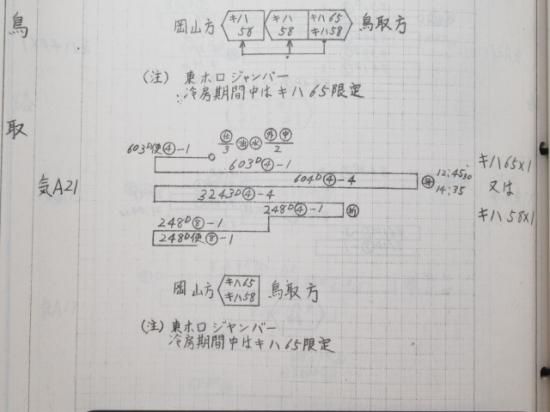 鳥
取
岡山方 キハ58 キハ58 キハ65 キハ58 鳥取方
(注) 東ホロジャンパー
冷房期間中はキハ65限定
気A21
603D便④-1
603D④-1
604D④-4
12:45
14:35
3243D④-4
248D④-1
248D⑧-1
248D便⑧-1
キハ65×1
又は
キハ58×1
岡山方 キハ65 キハ58 鳥取方
(注) 東ホロジャンパー
冷房期間中はキハ65限定